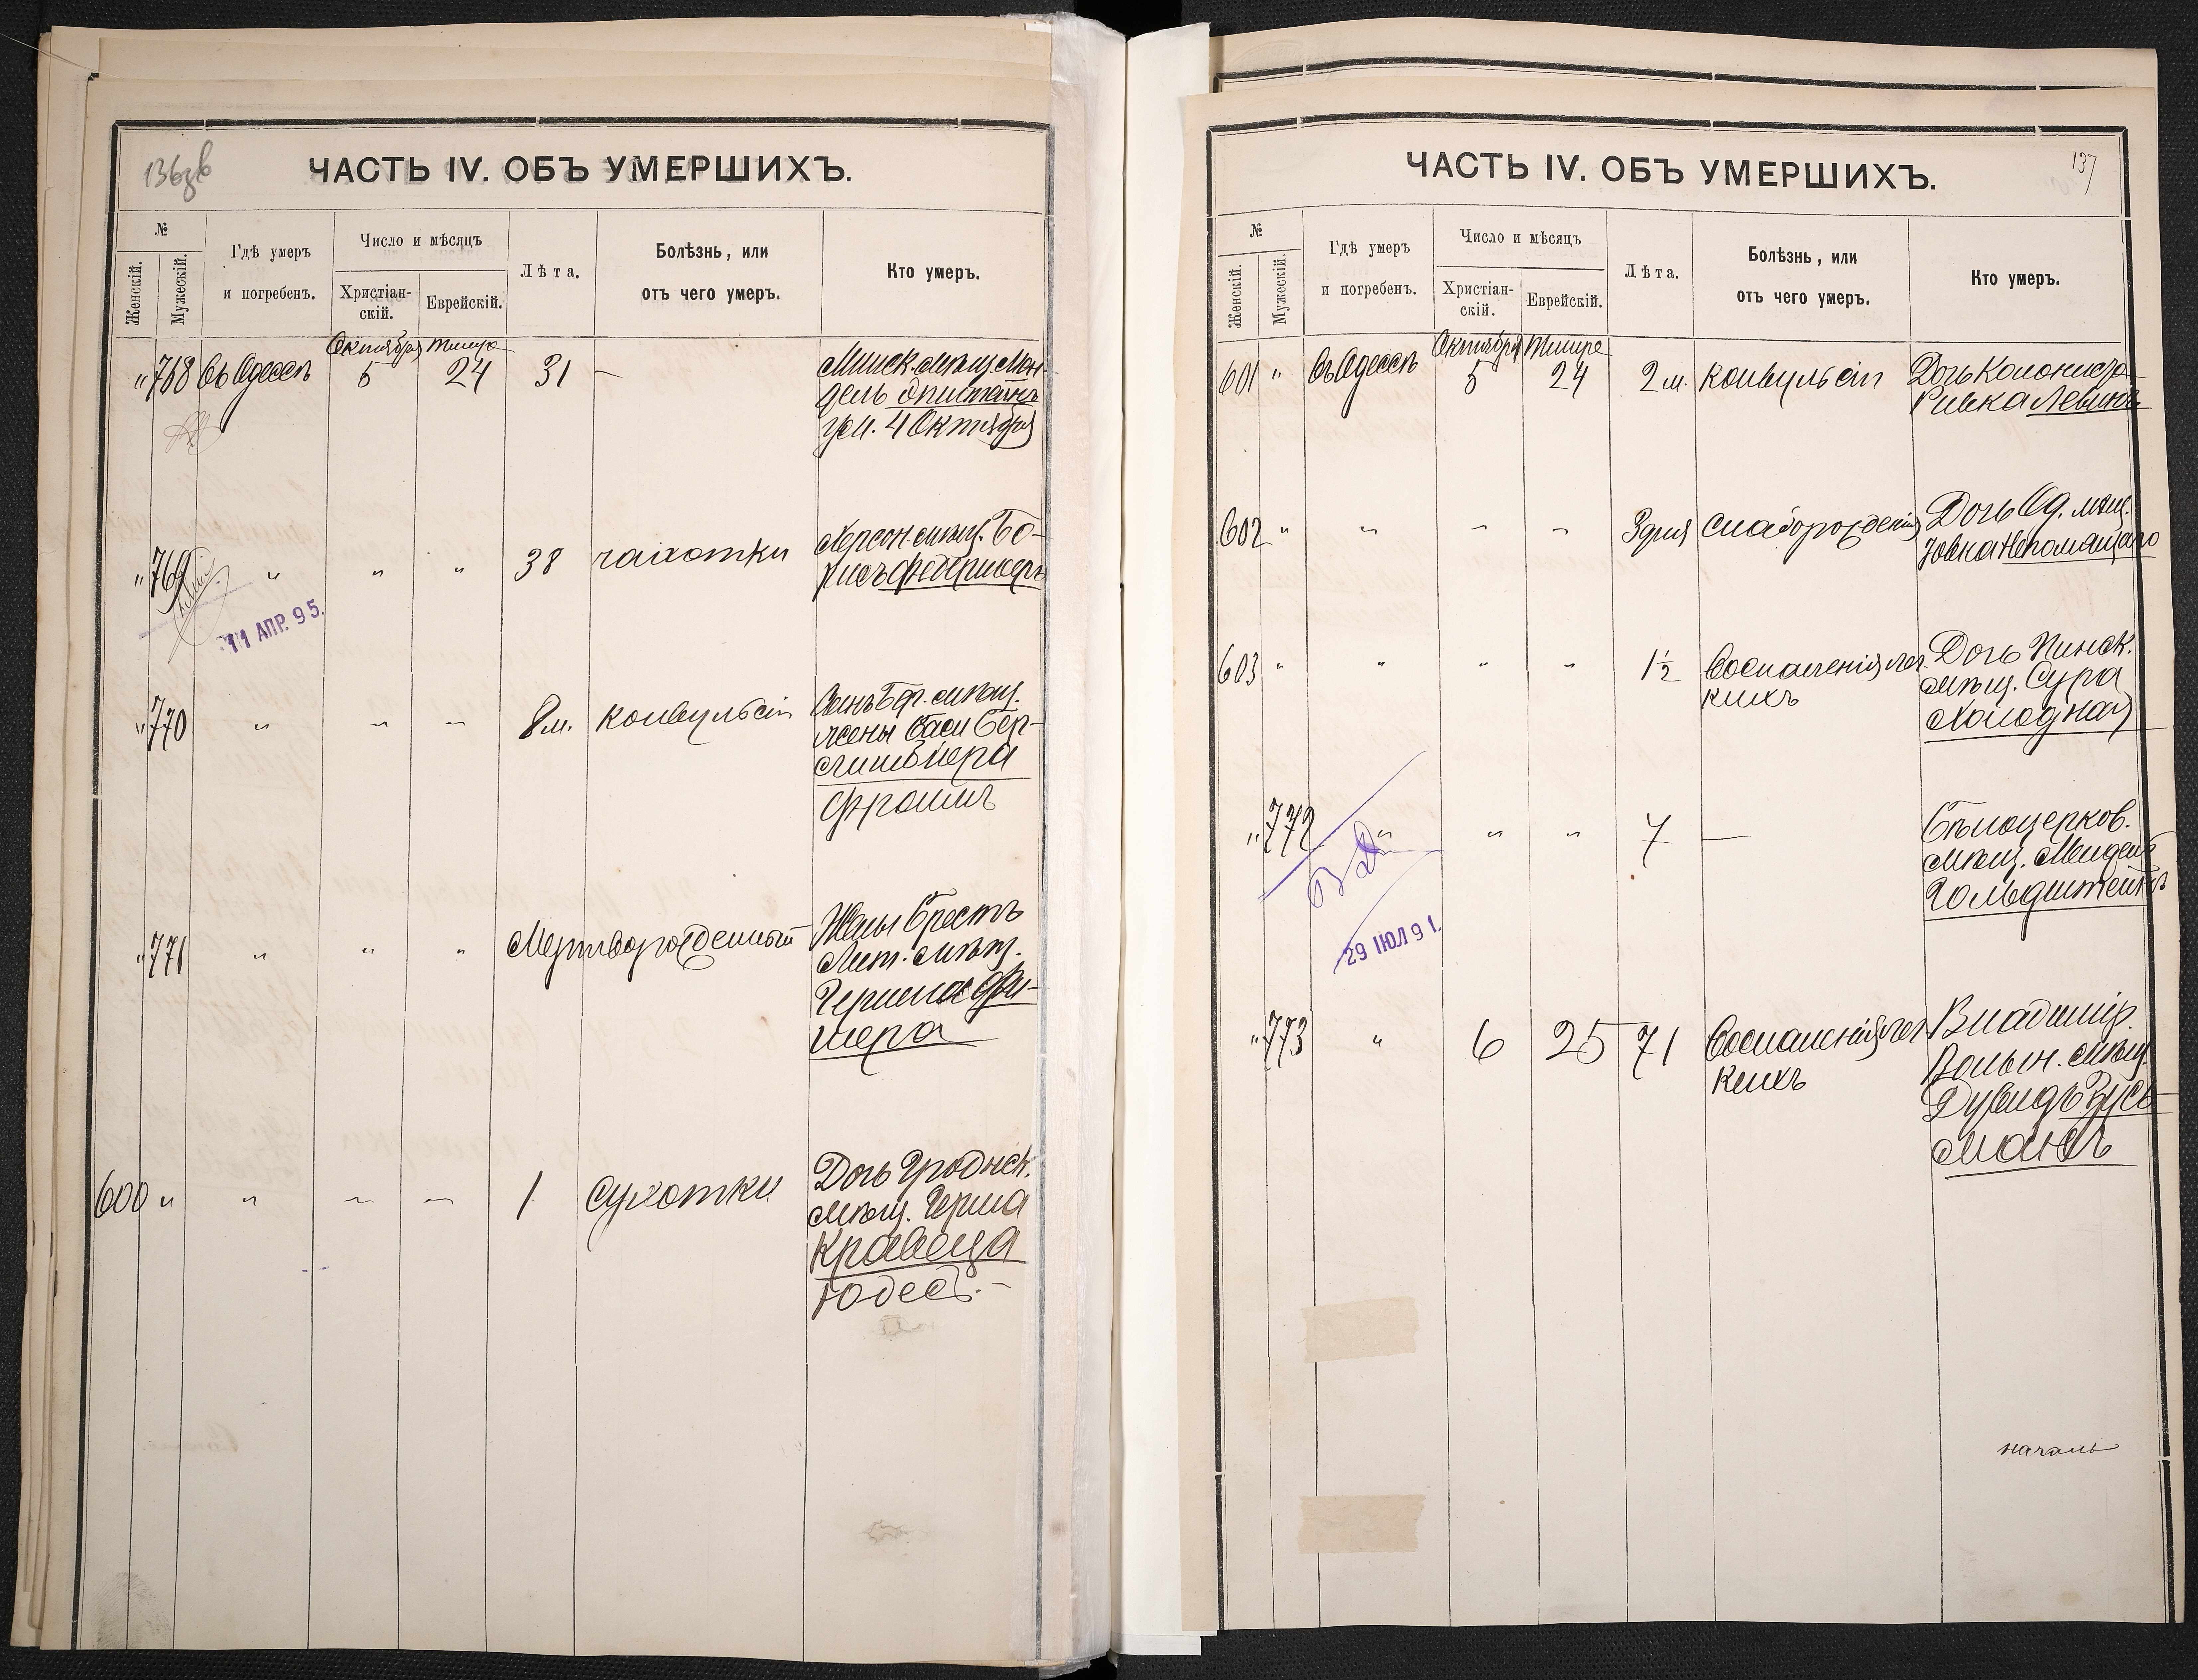 136зв
ЧАСТЬ IV. ОБЪ УМЕРШИХЪ.
№
Женскій.
Мужескій.
Гдѣ умеръ
и погребенъ.
Число и мѣсяцъ
Христіан-
скій.
Еврейскій.
Лѣта.
Болѣзнь, или
отъ чего умеръ.
Кто умеръ.
Октября Тишре
" 768 Въ Одессѣ 5 24 31 — Минск. мѣщ. Мен-
дель Эпштейнъ
ум. 4 Октября
" 769 " " " 38 чахотки Херсон мѣщ. Бо-
рисъ
11 АПР. 95.
" 770 " " " 8 м. конвульсіи Сынъ Бф. мѣщ.
жены Баси Бер-
Фроимъ
" 771 " " " Мертворожденный Жены Брестъ
Лит. мѣщ.
Герша Фи-
шера
600 " " " " 1 сухотки Дочь Гроднск.
мѣщ. Герша
Кравеца
Юдесъ.—
137
ЧАСТЬ IV. ОБЪ УМЕРШИХЪ.
№
Женскій.
Мужескій.
Гдѣ умеръ
и погребенъ.
Число и мѣсяцъ
Христіан-
скій.
Еврейскій.
Лѣта.
Болѣзнь, или
отъ чего умеръ.
Кто умеръ.
Октября Тишре
601 " Въ Одессѣ 5 24 2 м. конвульсіи Дочь Колониста
Ривка Левинъ
602 " " " " 3 дня слаборожденія Дочь Од. мѣщ.
Ховка Непомящаго
603 " " " " 1½ Воспаленія лег-
кихъ Дочь Пинск.
мѣщ. Сура
Холодная
" 772 " " " 7 — Бѣлоцерков.
мѣщ. Мендель
Гольдштейнъ
29 ІЮЛ 91.
" 773 " 6 25 71 Воспаленія лег-
кихъ Владимір.
Волын. мѣщ.
Дувидъ Зусь-
манъ
началъ